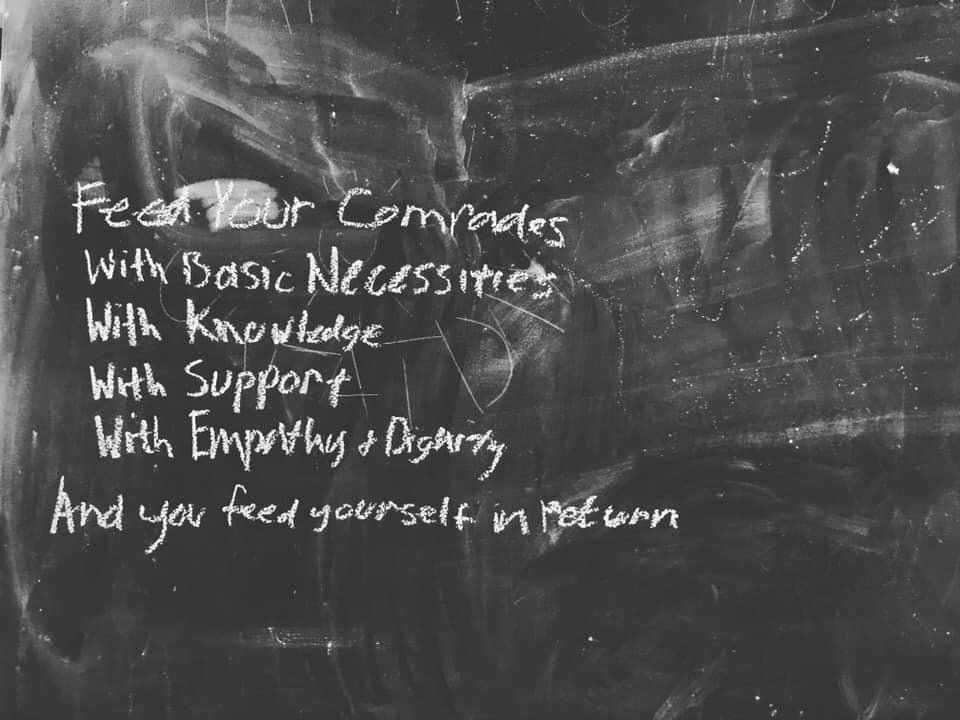 Feed Your Comrades
With Basic Necessities
With Knowledge
With Support
With Empathy + Dignity
And you feed yourself in return